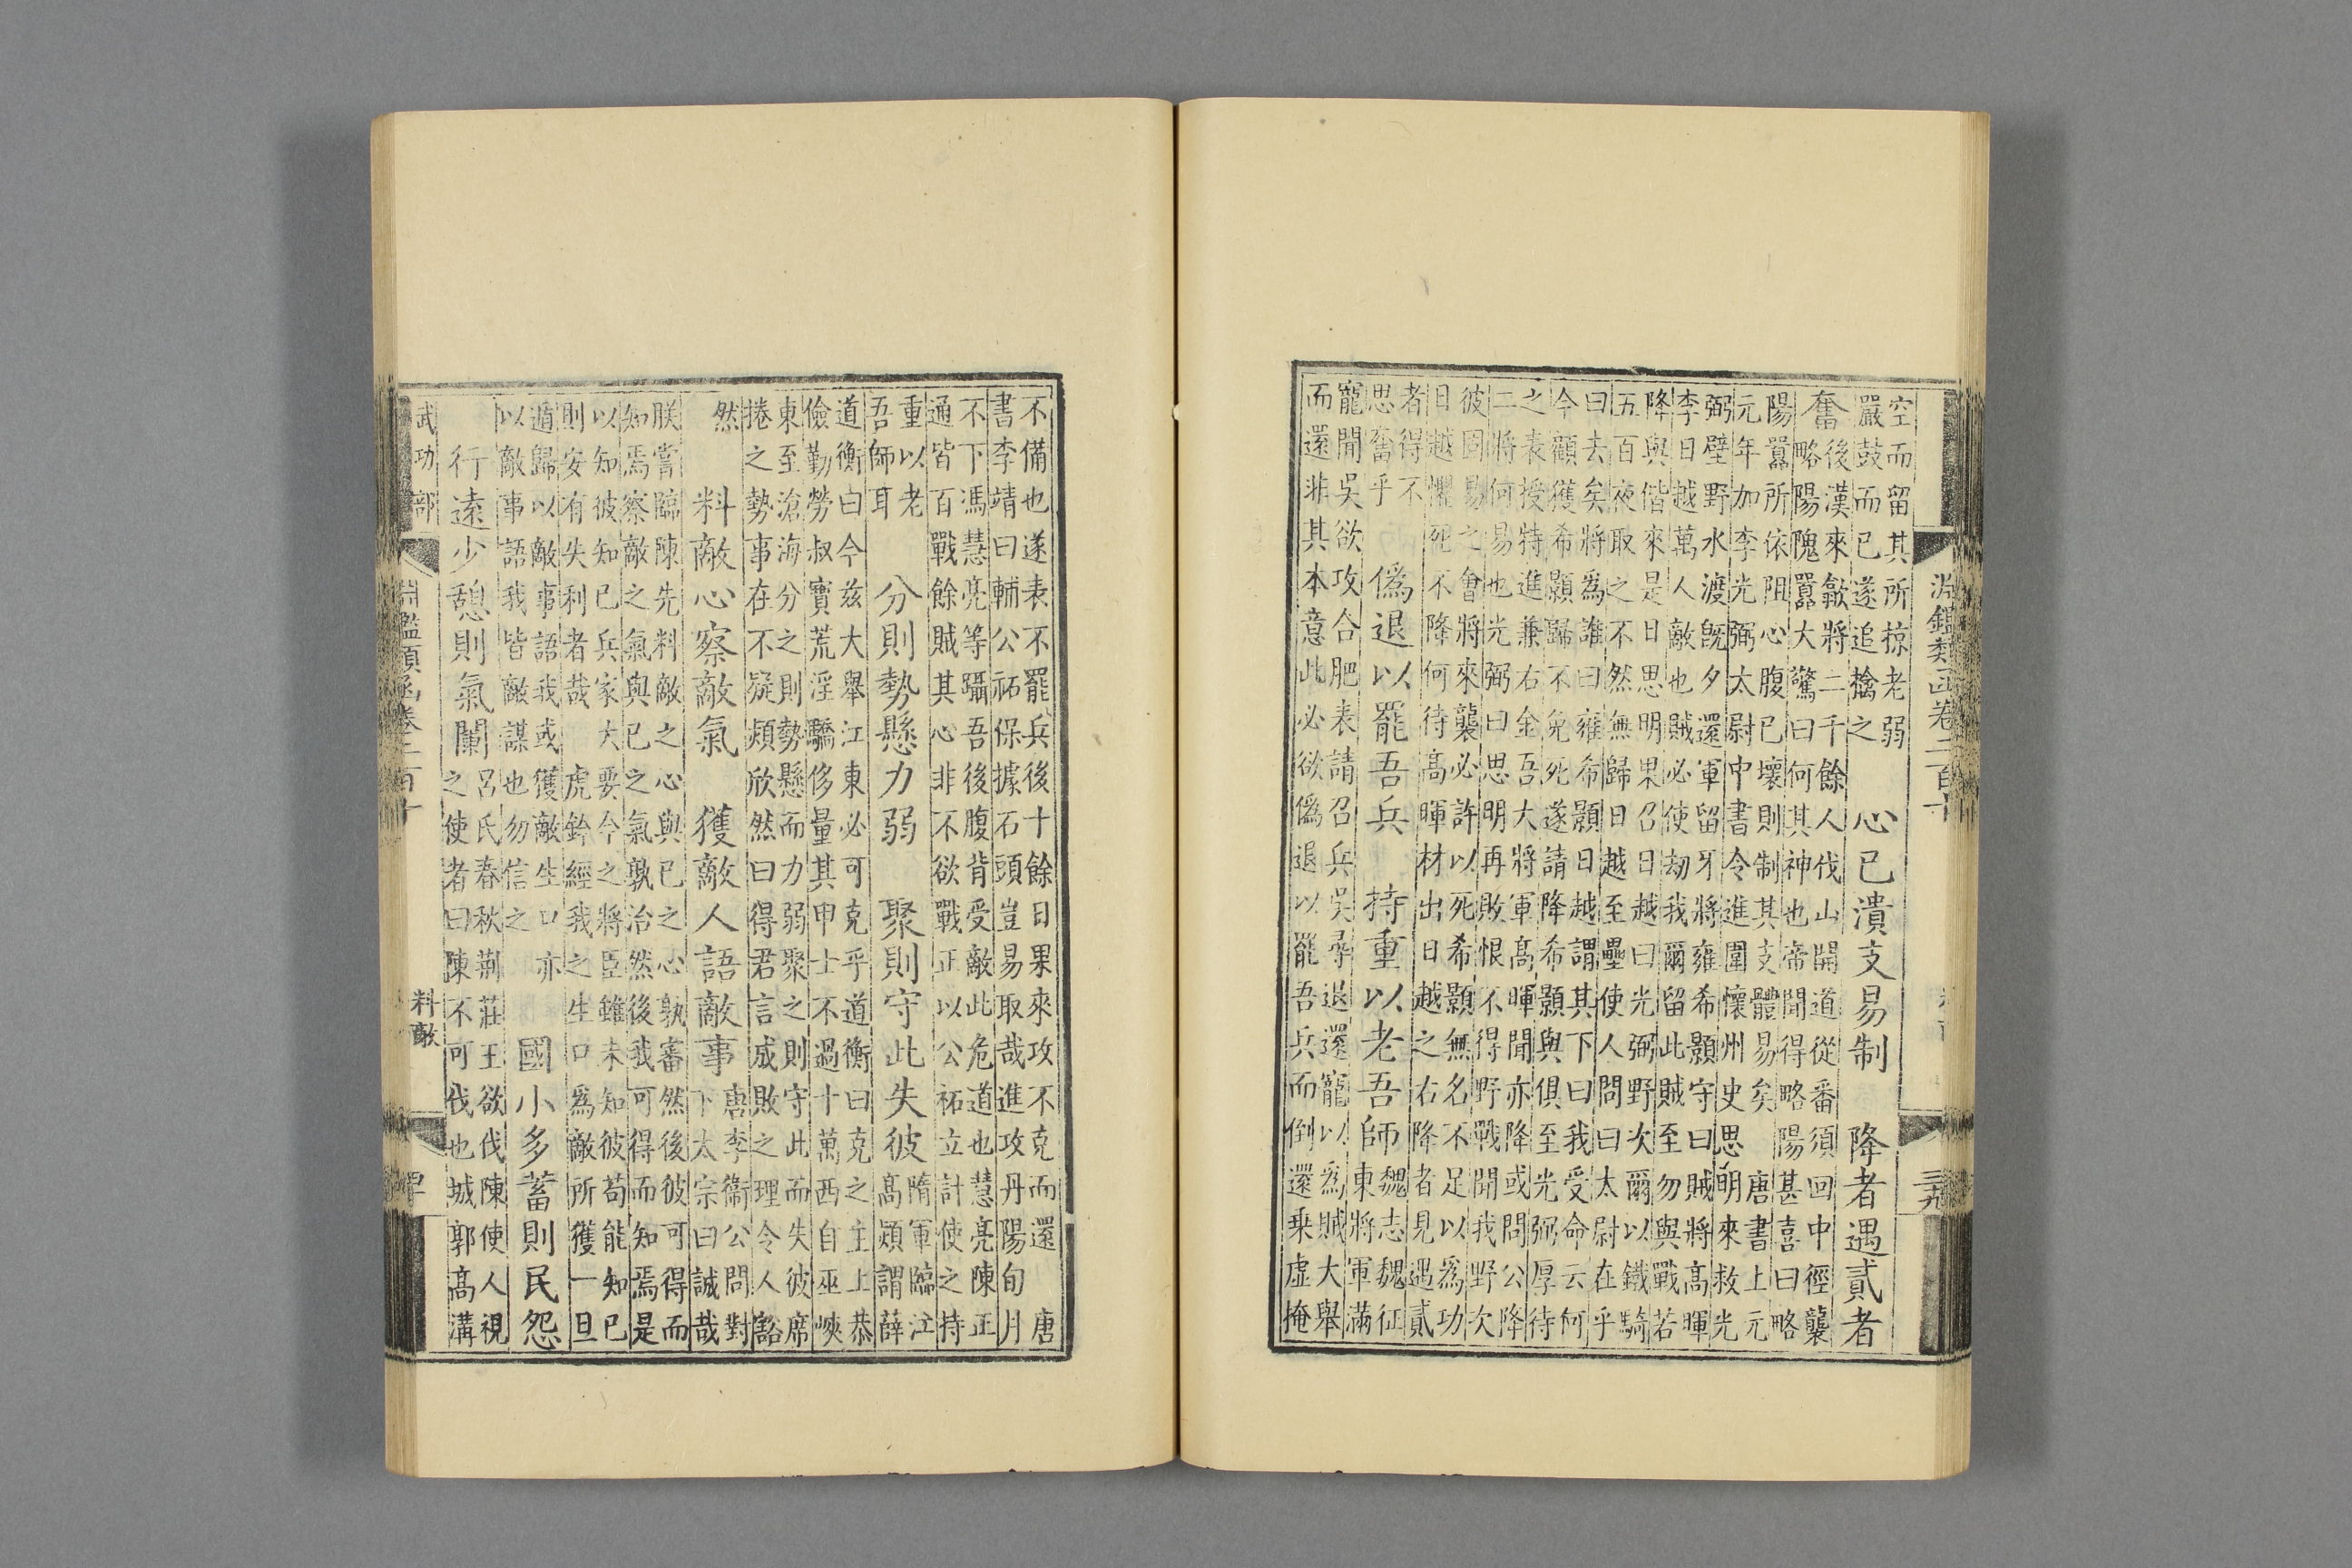 淵鑑類函卷二百十
三九
空而留其所掠老弱
嚴鼓而已遂追擒之
心已潰支易制　降者遇貳者
奮
後漢來歙將二千餘人伐山開道從番須回中徑襲
略陽隗囂大驚曰何其神也帝聞得略陽甚喜曰略
陽囂所依阻心腹已壞則制其支體易矣　唐書上元
元年加李光弼太尉中書令進圍懷州史思明來救光
弼壁野水渡旣夕還軍留牙將雍希顥守曰賊將高暉
李日越萬人敵也賊必使劫我爾留此賊至勿與戰若
降與偕來是日思明果召日越曰光弼野次爾以鐵騎
五百夜取之不然無歸日越至壘使人問曰太尉在乎
曰去矣將爲誰曰雍希顥日越謂其下曰我受命云何
今顧獲希顥歸不免死遂請降希顥與俱至光弼厚待
之表授特進兼右金吾大將軍高暉聞亦降或問公降
二將何易也光弼曰思明再敗恨不得野戰聞我野次
彼固易之會將來襲必許以死希顥無名不足以爲功
日越懼死不降何待高暉材出日越之右降者見遇貳
者得不
思奮乎
僞退以罷吾兵　持重以老吾師
魏志魏征
東將軍滿
寵聞吳欲攻合肥表請召兵吳尋退還寵以爲賊大舉
而還非其本意此必欲僞退以罷吾兵而倒還乗虛掩
不備也遂表不罷兵後十餘日果來攻不克而還　唐
書李靖曰輔公祏保據石頭豈易取哉進攻丹陽旬月
不下馮慧亮等躡吾後腹背受敵此危道也慧亮陳正
通皆百戰餘賊其心非不欲戰正以公祏立計使之持
重以老
吾師耳
分則勢懸力弱　聚則守此失彼
隋軍臨江
高熲謂薛
道衡曰今兹大舉江東必可克乎道衡曰克之主上恭
儉勤勞叔寶荒淫驕侈量其甲士不過十萬西自巫峽
東至滄海分之則勢懸而力弱聚之則守此而失彼席
捲之勢事在不疑熲欣然曰得君言成敗之理令人豁
然
料敵心察敵氣　獲敵人語敵事
唐李衞公問對
下太宗曰誠哉
朕嘗臨陳先料敵之心與已之心孰審然後彼可得而
知焉察敵之氣與已之氣孰治然後我可得而知焉是
以知彼知已兵家大要今之將臣雖未知彼苟能知已
則安有失利者哉　虎鈐經我之生口爲敵所獲一旦
遁歸以敵事語我或獲敵生口亦
以敵事語我皆敵謀也勿信之
國小多蓄則民怨
行遠少憩則氣闌
呂氏春秋荆莊王欲伐陳使人視
之使者曰陳不可伐也城郭高溝
武功部
淵鑑類函卷二百十
料敵